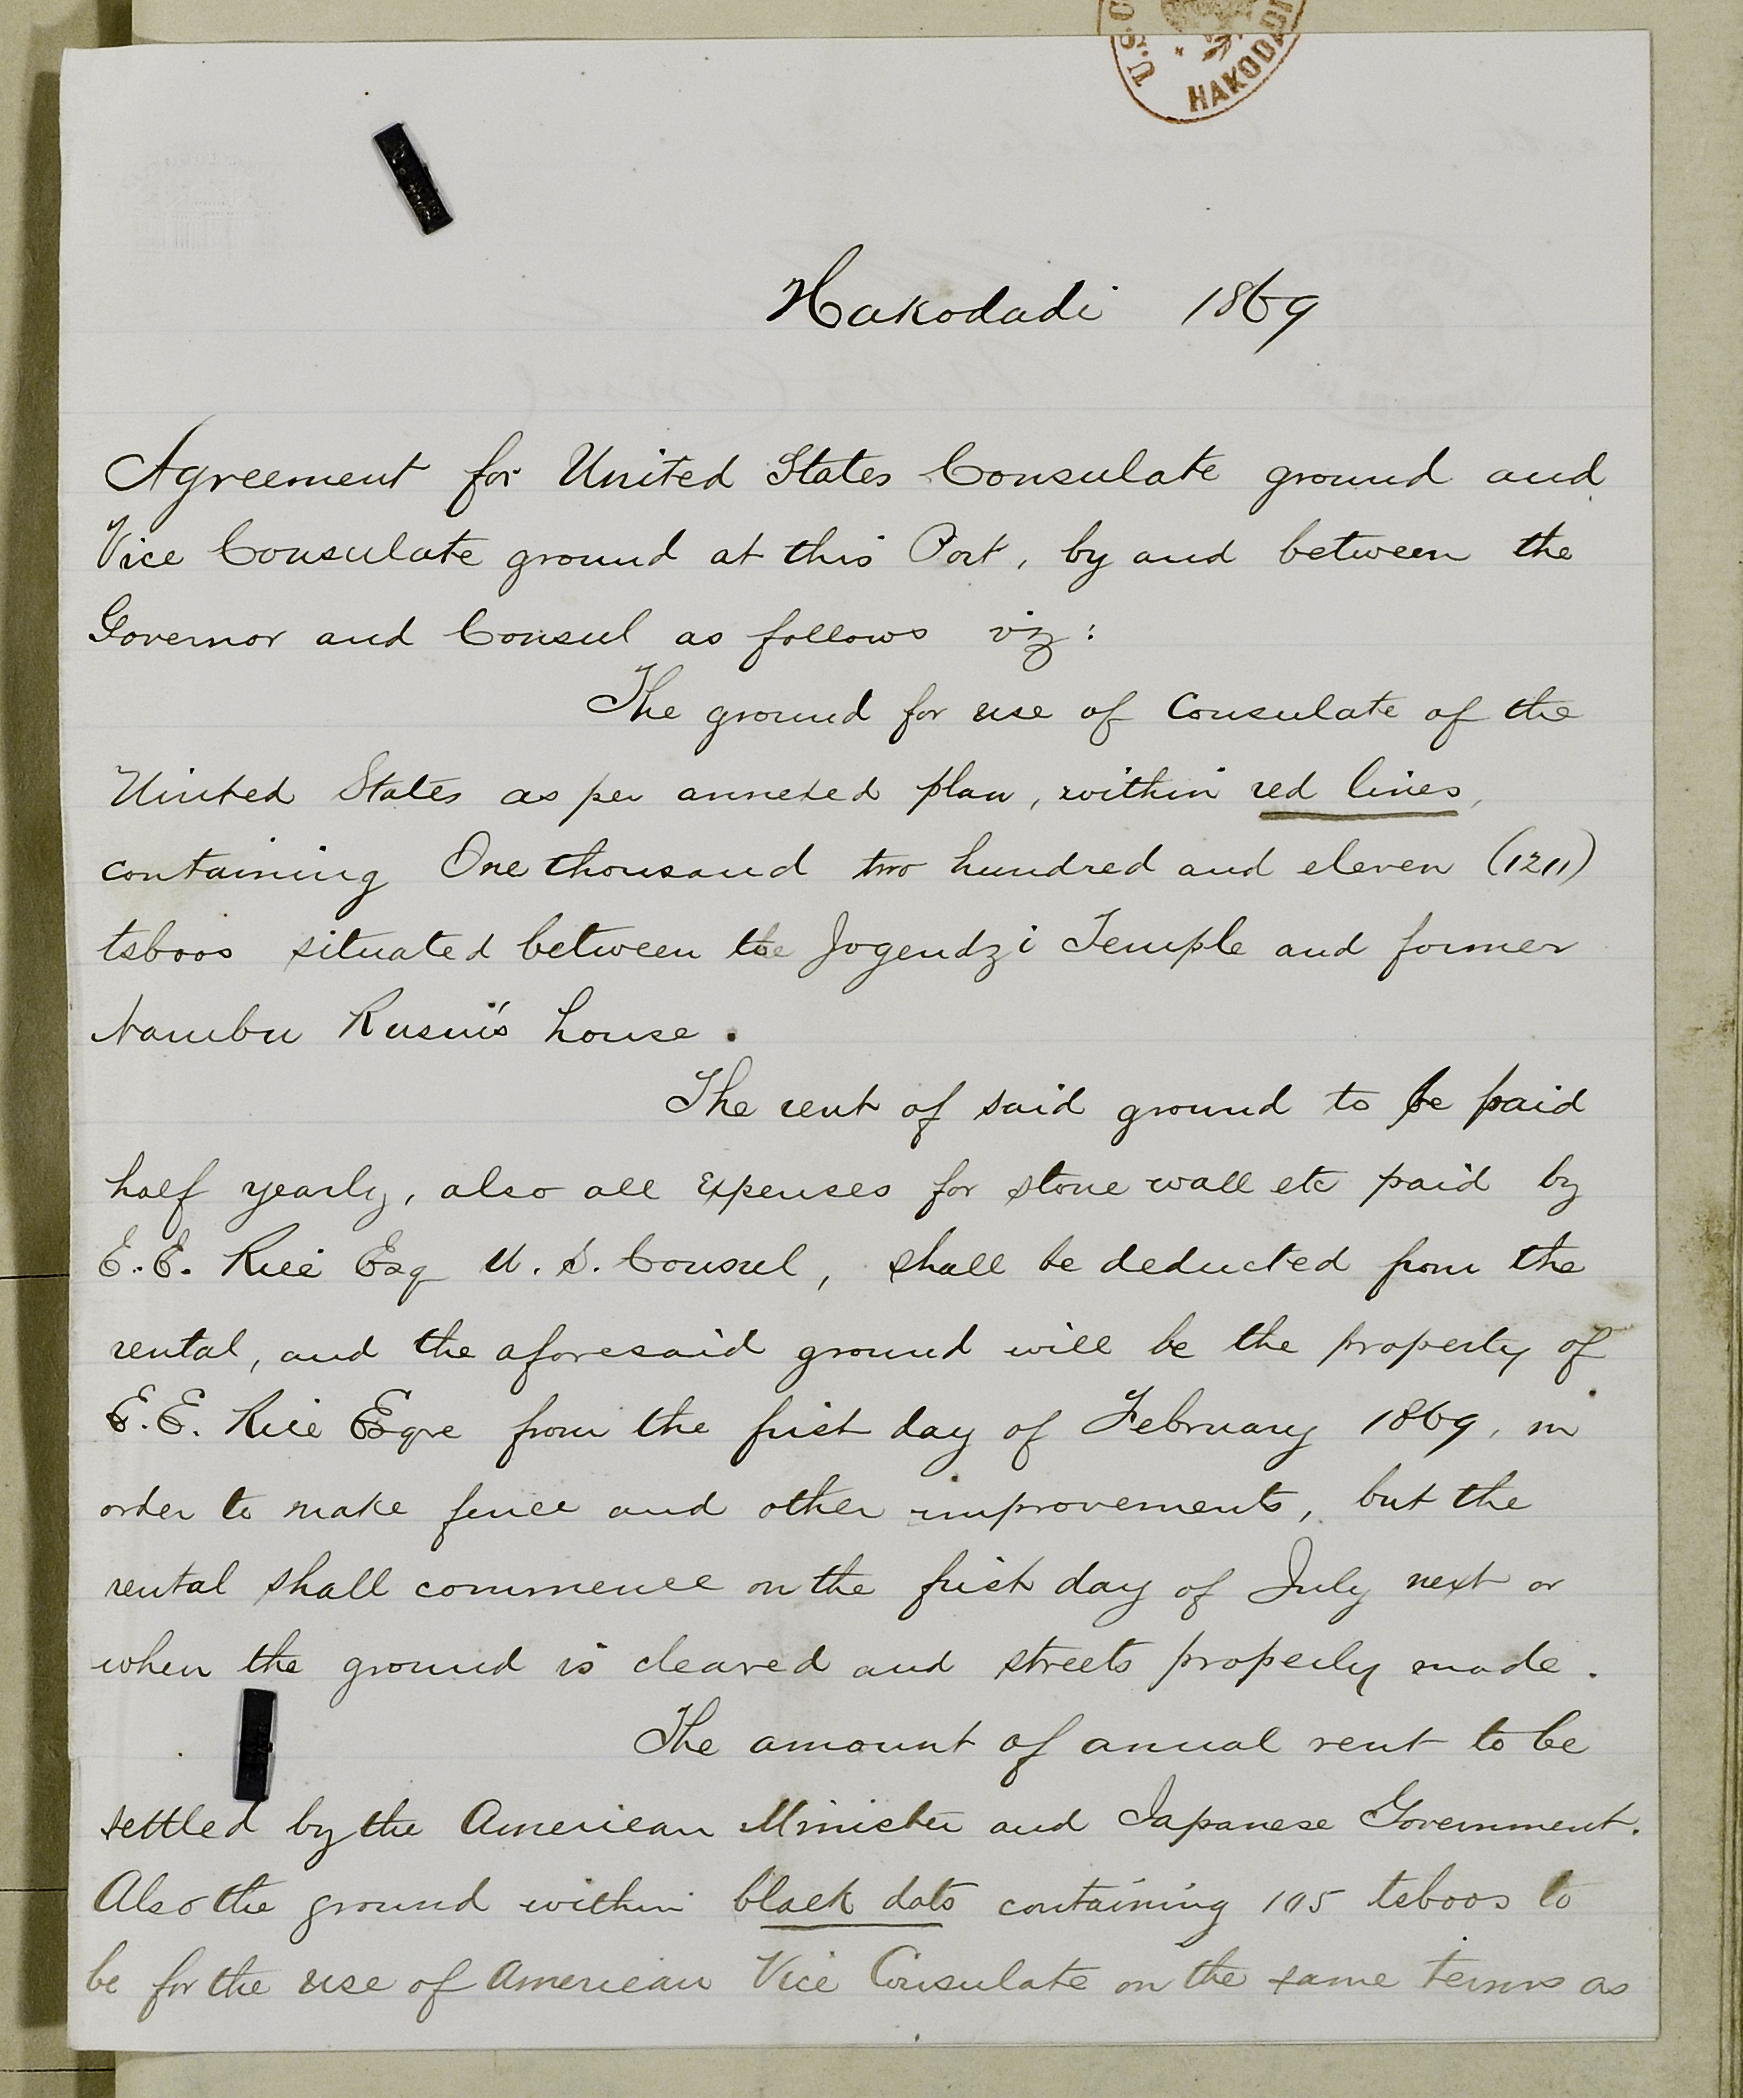 U.S.C
HAKODADI
Hakodadi 1869
Agreement for United States Consulate ground and
Vice Consulate ground at this Port, by and between the
Governor and Consul as follows viz:
The ground for use of Consulate of the
United States as per annexed plan, within red lines,
containing One thousand two hundred and eleven (1211)
tsboos situated between the Jogendzi Temple and former
Nambu Rusui's house.
The rent of said ground to be paid
half yearly, also all expenses for stone wall etc paid by
E.E. Rice Esq U.S. Consul, shall be deducted from the
rental, and the aforesaid ground will be the property of
E.E. Rice Esqre from the first day of February 1869, in
order to make fence and other improvements, but the
rental shall commence on the first day of July next or
when the ground is cleared and streets properly made.
The amount of annual rent to be
settled by the American Minister and Japanese Government.
Also the ground within black dots containing 105 tsboos to
be for the use of American Vice Consulate on the same terms as